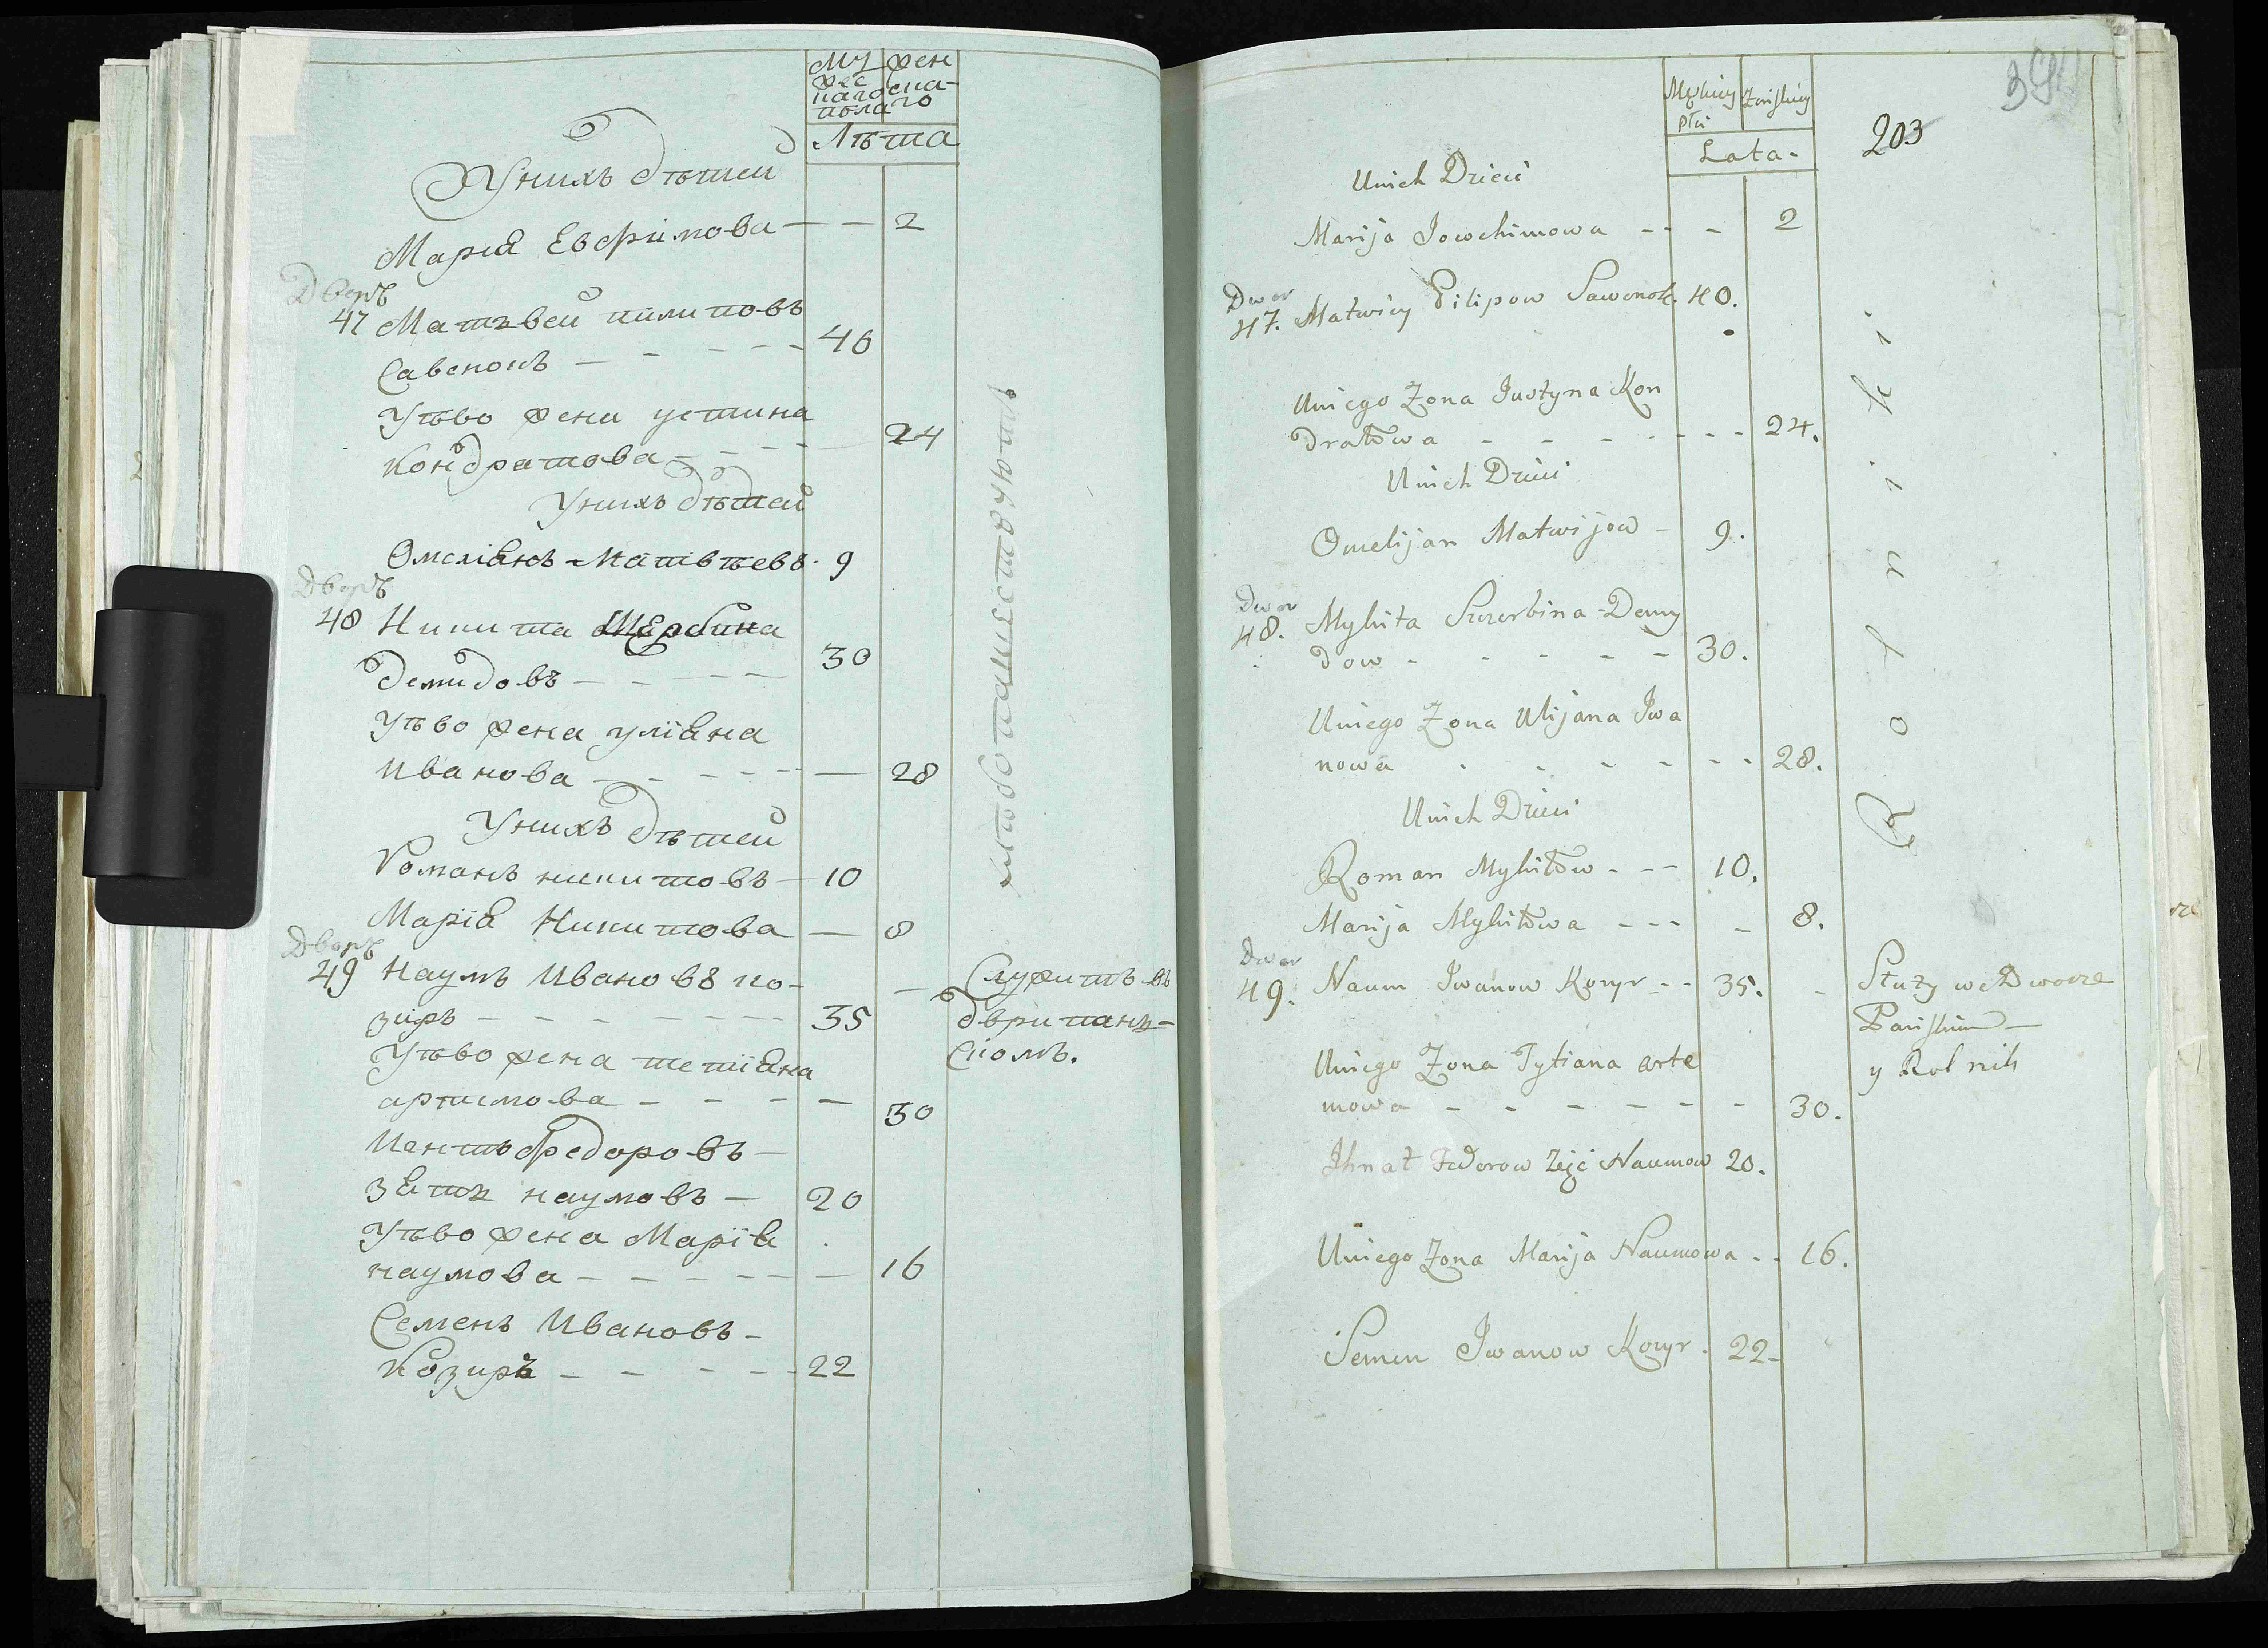 Мужеска пола
женскаго
Лѣта
У нихъ дѣтей
Марія Евфимова — — 2
Дворъ
47 Матвей пилиповъ
Савенокъ — — — — 40
У ѣво жена устина
Кондратова — — — — 24
У нихъ дѣтей
Омеліянъ Матвѣевъ 9
Дворъ
48 Никита Щербина
Демидовъ — — — — 30
У ѣво жена уліяна
Иванова — — — — — 28
У нихъ дѣтей
Романъ никитовъ — 10
Марія Никитова — 8
Дворъ
49 Наумъ Ивановъ ко-
зиръ — — — — — 35
У ѣво жена тетіяна
артимова — — — — 30
Игнатъ федоровъ —
зять наумовъ — 20
У ѣво жена Марія
наумова — — — — — 16
Семенъ Ивановъ —
Козиръ — — — — — 22
хлѣбопашествуютъ
Служитъ въ
дври панъ-
скомъ.
Męskiey płci
Zenskiey
Lata.
203
U nich Dzieci
Marija Jowchimowa - - - 2
Dwor
47. Matwiey Pilipow Sawenok. 40.
U niego Zona Justyna Kon
dratowa - - - - - - - 24.
U nich Dzieci
Omelijan Matwijow - 9.
Dwor
48. Mykita Szczerbina Demy
dow - - - - - 30.
U niego Zona Ulijana Iwa
nowa - - - - - - 28.
U nich Dzieci
Roman Mykitow - - - 10.
Marija Mykitowa - - - - 8.
Dwor
49. Naum Iwanow Kozyr - - 35. -
U niego Zona Tytiana arte
mowa - - - - - - 30.
Ihnat Fedorow Zęjć Naumow 20.
U niego Zona Marija Naumowa - - 16.
Semen Iwanow Kozyr. 22-
Rolniki.
Służy we Dworze
Panskim —
y Rolnik